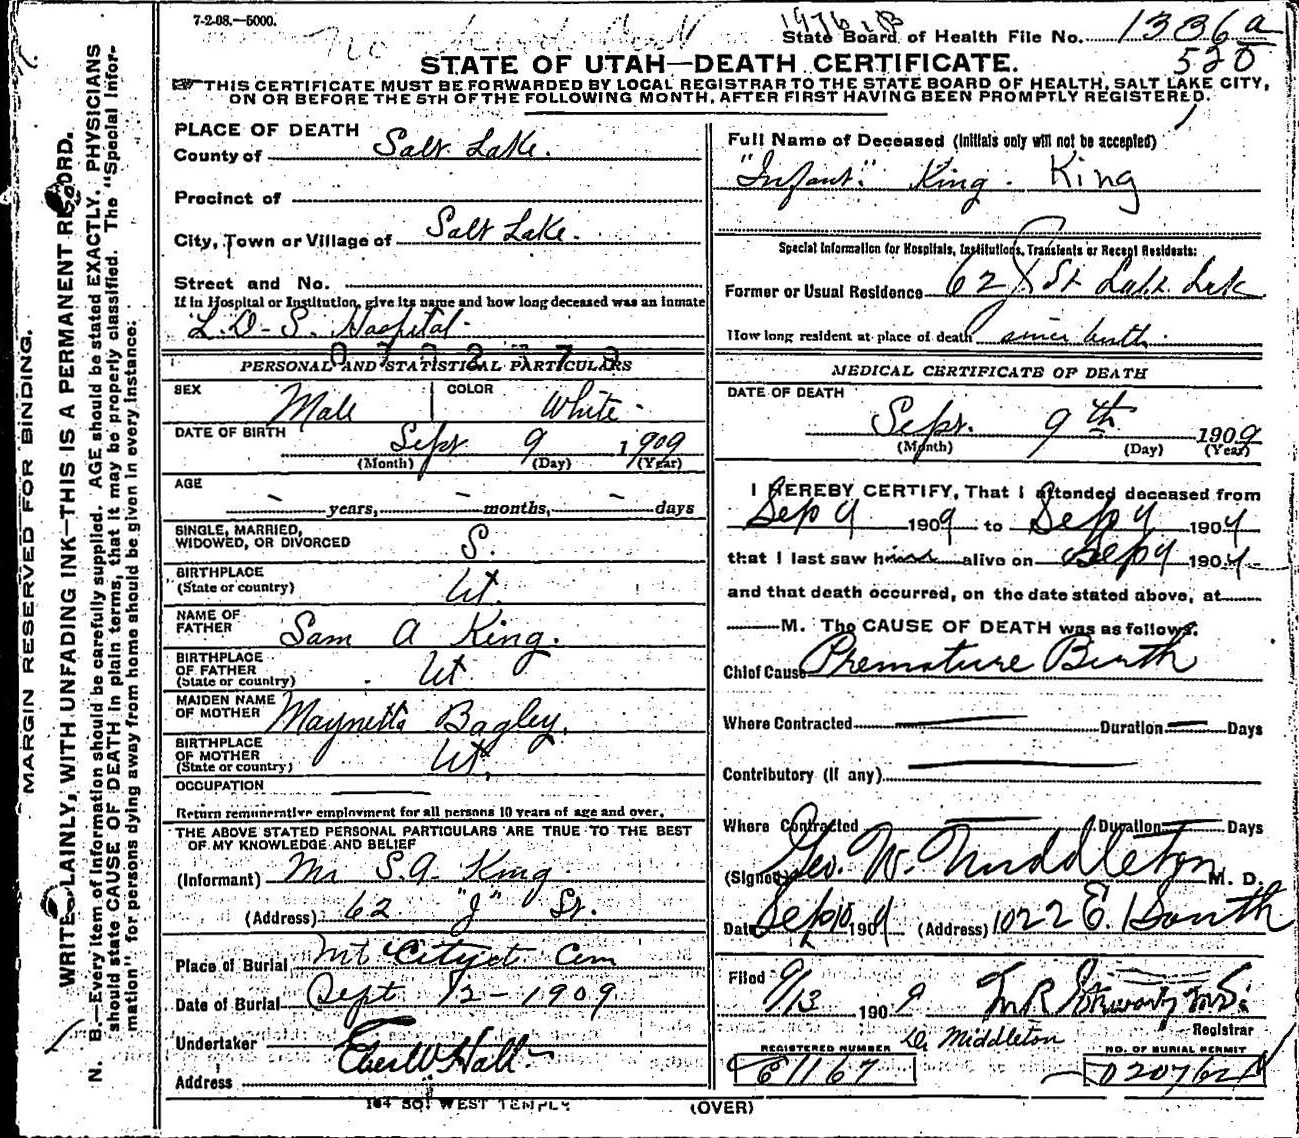 7-2-08.—5000.
State Board of Health File No. 1336a
520
STATE OF UTAH—DEATH CERTIFICATE.
THIS CERTIFICATE MUST BE FORWARDED BY LOCAL REGISTRAR TO THE STATE BOARD OF HEALTH, SALT LAKE CITY,
ON OR BEFORE THE 5TH OF THE FOLLOWING MONTH, AFTER FIRST HAVING BEEN PROMPTLY REGISTERED.
MARGIN RESERVED FOR BINDING.
WRITE PLAINLY, WITH UNFADING INK—THIS IS A PERMANENT RECORD.
N. B.—Every item of information should be carefully supplied. AGE should be stated EXACTLY. PHYSICIANS
should state CAUSE OF DEATH in plain terms, that it may be properly classified. The "Special Infor-
mation" for persons dying away from home should be given in every instance.
PLACE OF DEATH
County of Salt Lake.
Precinct of
City, Town or Village of Salt Lake.
Street and No.
If in Hospital or Institution, give its name and how long deceased was an inmate
L. D. S. Hospital.
PERSONAL AND STATISTICAL PARTICULARS
SEX Male COLOR White.
DATE OF BIRTH Sept 9 1909
(Month) (Day) (Year)
AGE
- years, - months, - days
SINGLE, MARRIED,
WIDOWED, OR DIVORCED S.
BIRTHPLACE
(State or country) Ut.
NAME OF
FATHER Sam A King.
BIRTHPLACE
OF FATHER
(State or country) Ut
MAIDEN NAME
OF MOTHER Maynetta Bagley.
BIRTHPLACE
OF MOTHER
(State or country) Ut.
OCCUPATION
Return remunerative employment for all persons 10 years of age and over.
THE ABOVE STATED PERSONAL PARTICULARS ARE TRUE TO THE BEST
OF MY KNOWLEDGE AND BELIEF
(Informant) Mr S.A. King
(Address) 62 "J" St.
Place of Burial Mt City Cem
Date of Burial Sept 12-1909
Undertaker Eber W Hall
Address
164 SO. WEST TEMPLE
Full Name of Deceased (Initials only will not be accepted)
"Infant" King. King
Special Information for Hospitals, Institutions, Transients or Recent Residents:
Former or Usual Residence 62 J St Salt Lake
How long resident at place of death since birth.
MEDICAL CERTIFICATE OF DEATH
DATE OF DEATH
Sept. 9th 1909
(Month) (Day) (Year)
I HEREBY CERTIFY, That I attended deceased from
Sep 9 1909 to Sep 9 1909
that I last saw him alive on Sep 9 1909
and that death occurred, on the date stated above, at
M. The CAUSE OF DEATH was as follows:
Chief Cause Premature Birth
Where Contracted Duration Days
Contributory (If any)
Where Contracted Duration Days
(Signed) Geo. W. Middleton M. D.
Date Sep 10 1909 (Address) 1022 E. 1 South
Filed 9/13 1909
Registrar
Dr Middleton
REGISTERED NUMBER
61167
NO. OF BURIAL PERMIT
(OVER)